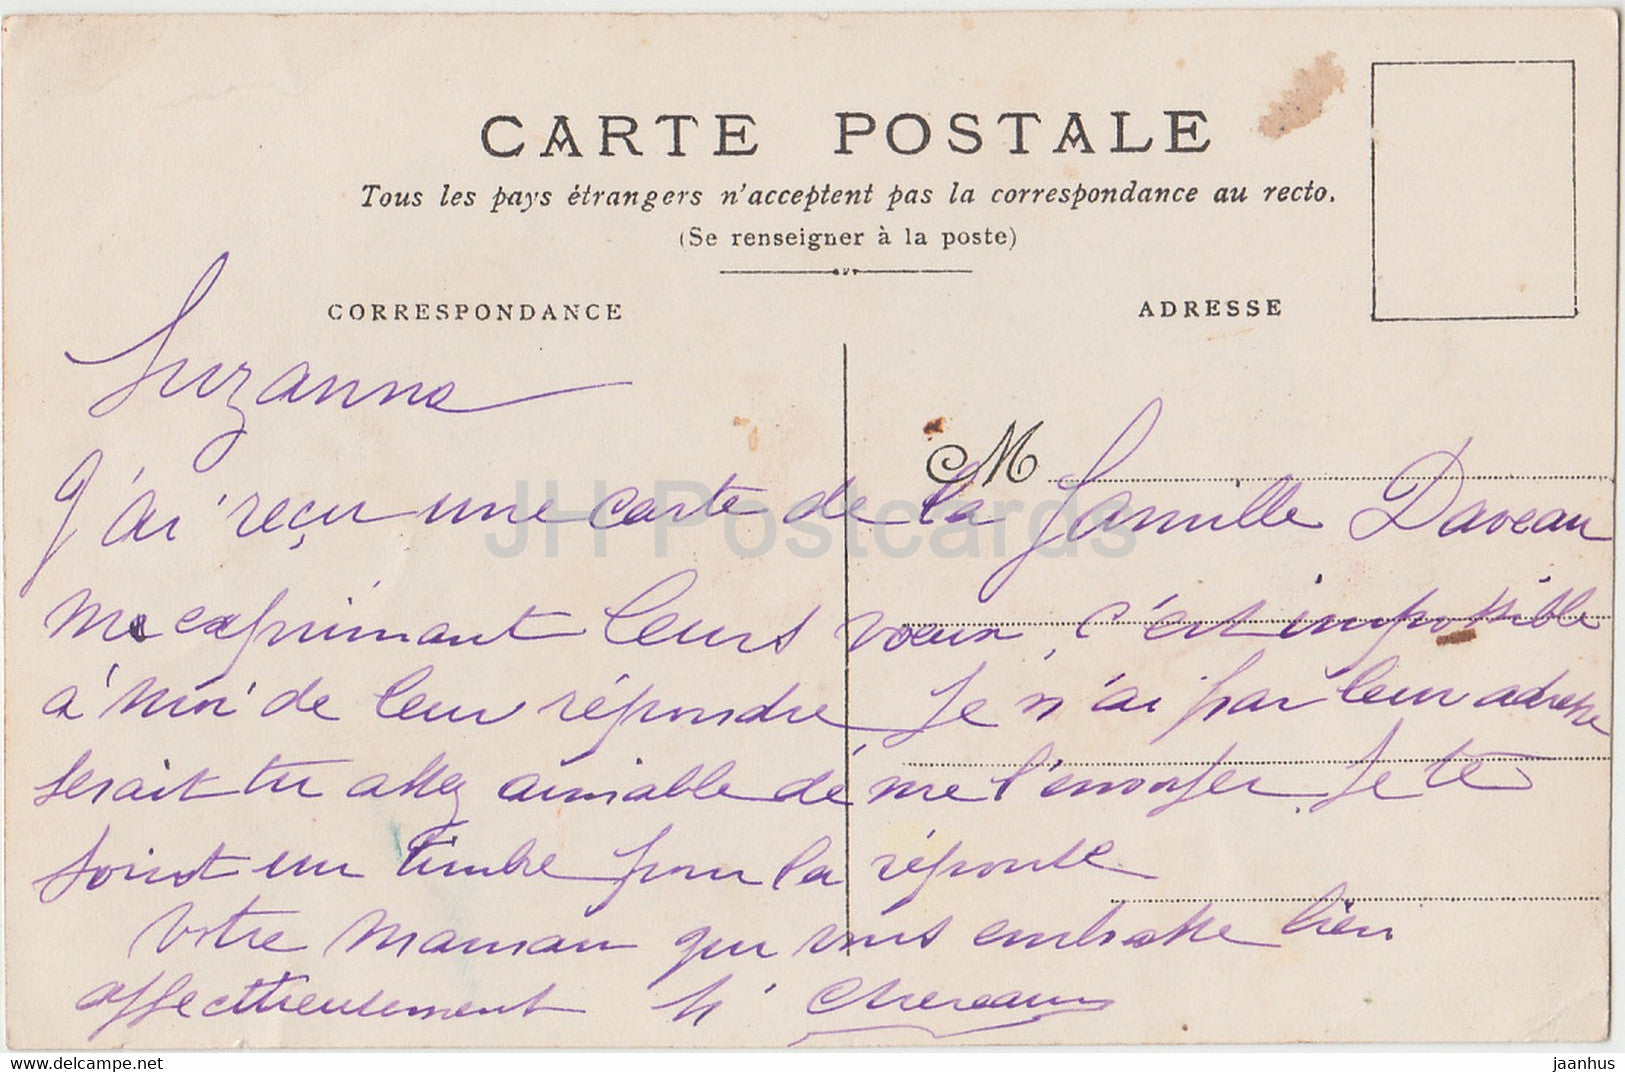 CARTE POSTALE
Tous les pays étrangers n'acceptent pas la correspondance au recto.
(Se renseigner à la poste)
CORRESPONDANCE
ADRESSE
M
Suzanne
J'ai reçu une carte de la famille Daveau
me exprimant leurs voeux, c'est impossible
à moi de leur répondre Je n'ai pas leur adresse
serait tu assez aimable de me l'envoyer. Je te
joint un timbre pour la réponse
Votre Maman qui vous embrasse bien
affectueusement
JH Postcards
hippostcard.com
jaanhus